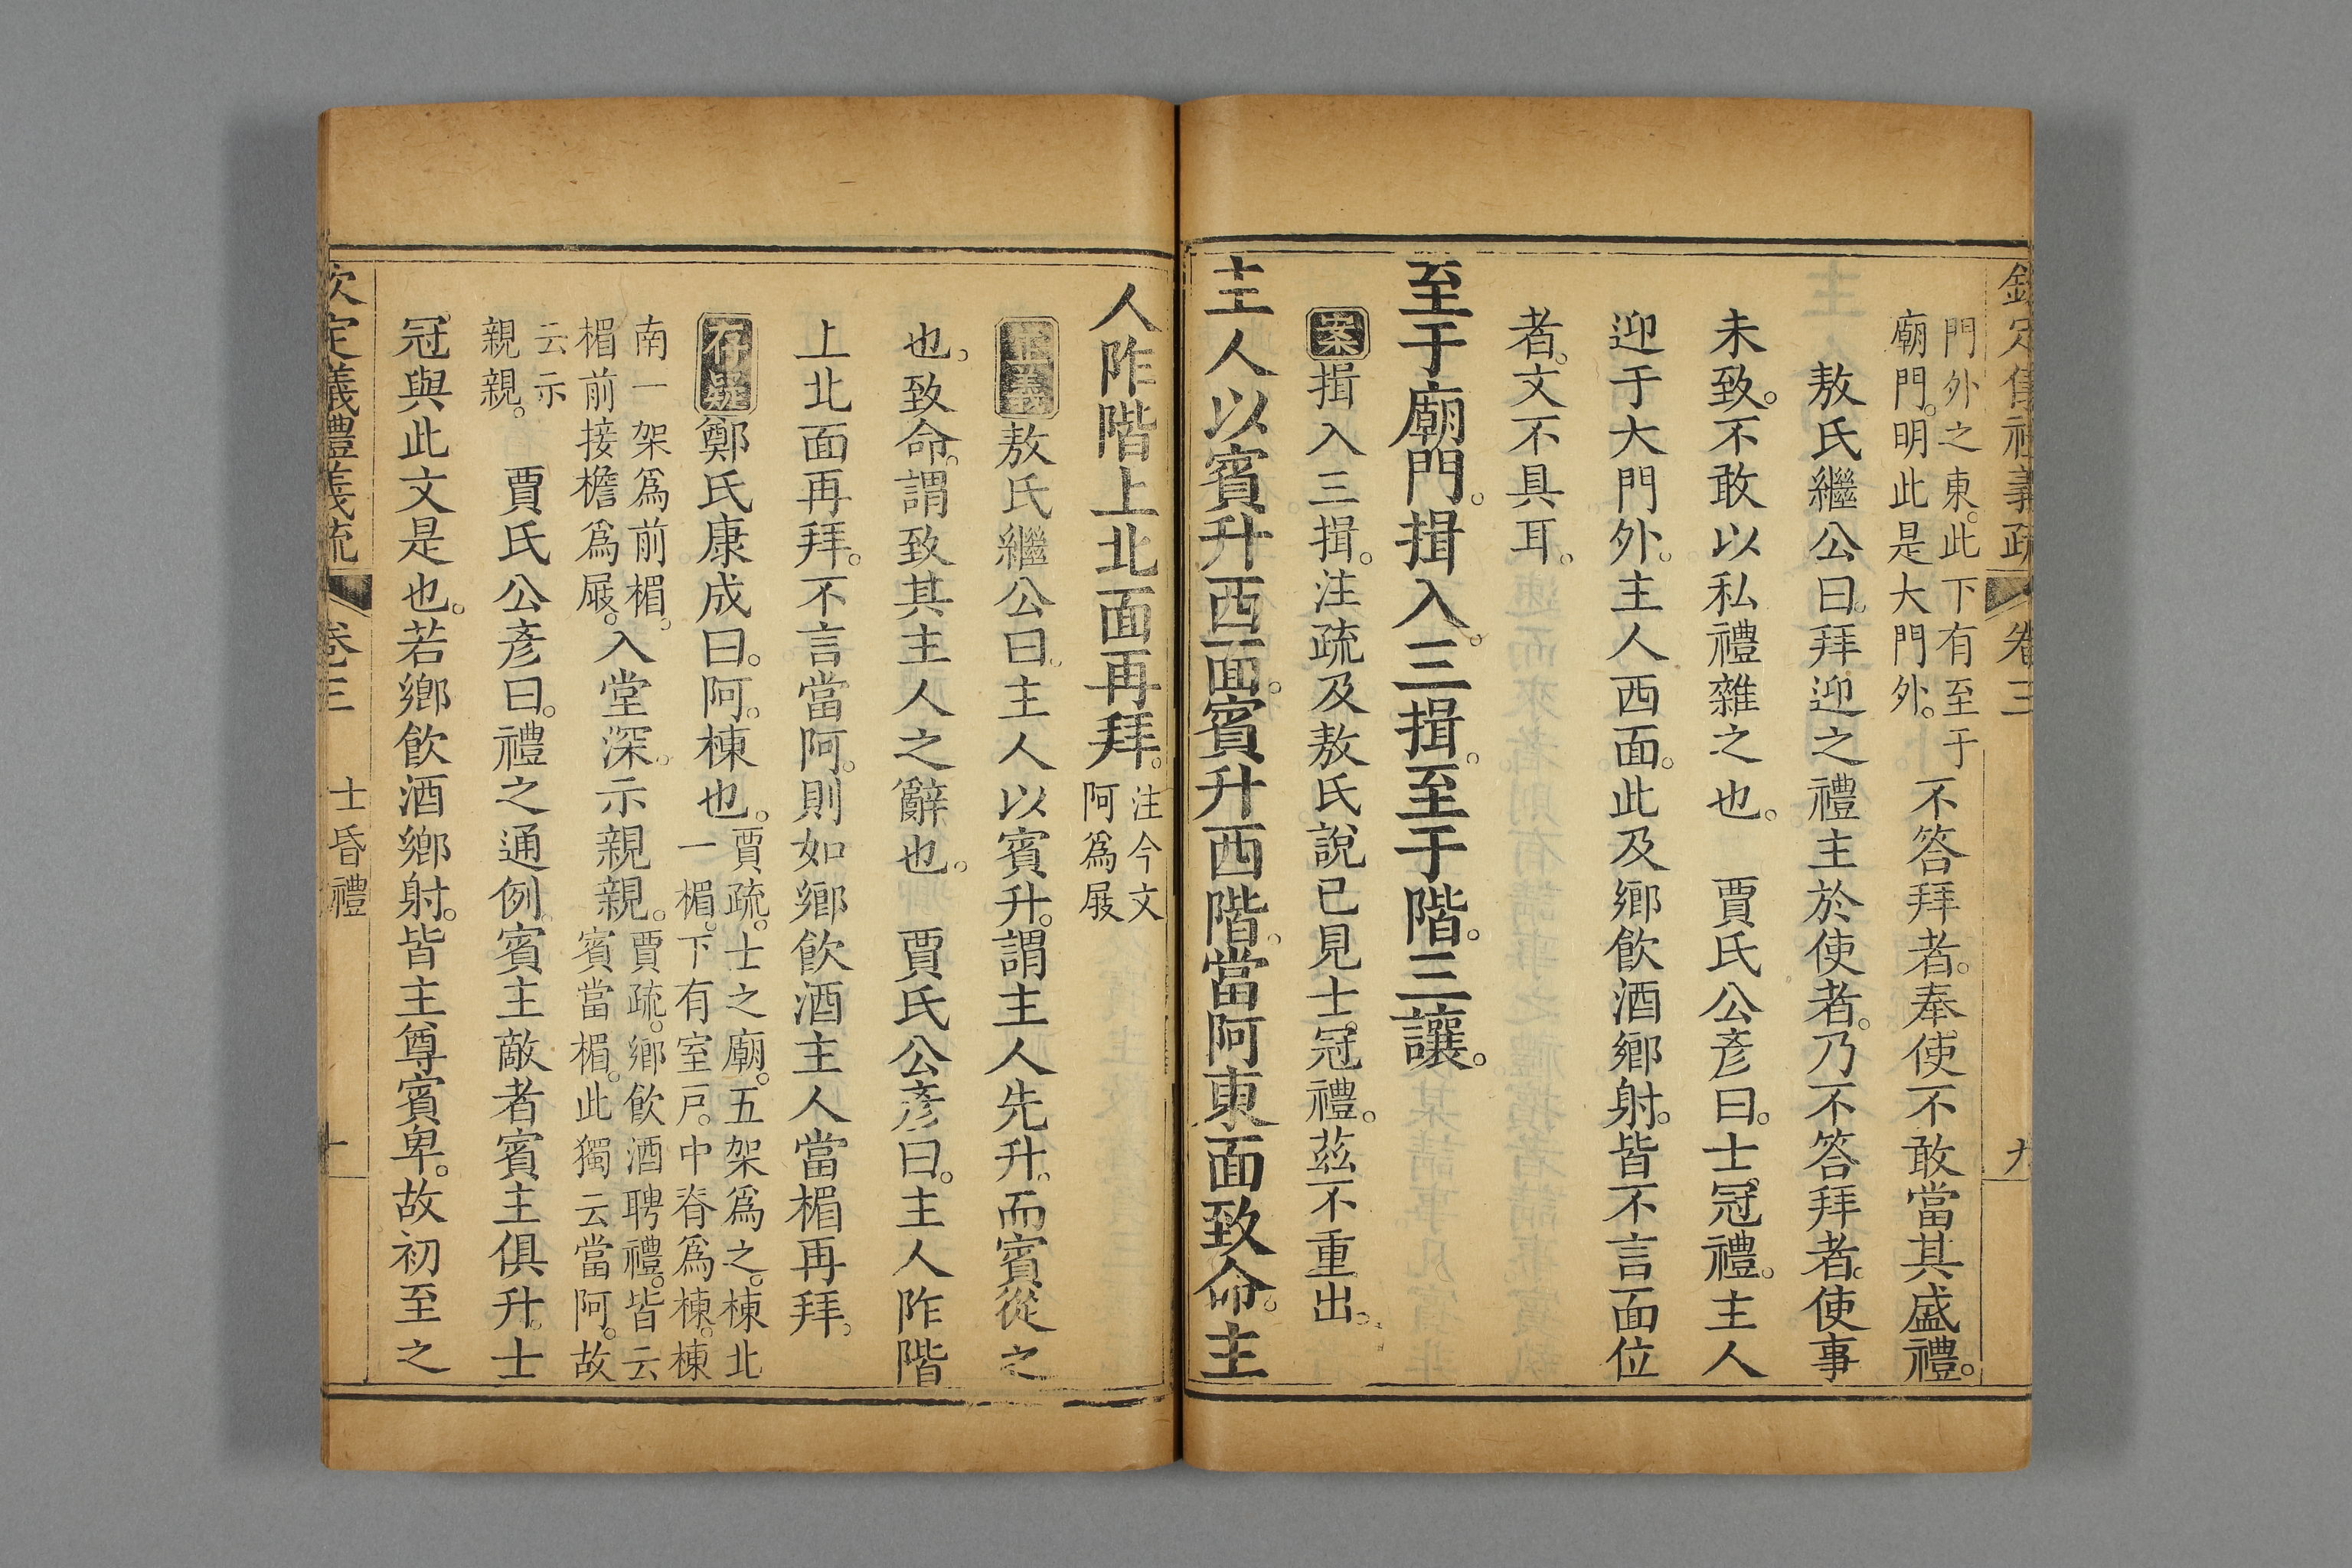 欽定儀禮義疏 卷三 九
門外之東。此下有至于
廟門。明此是大門外。
不答拜者。奉使不敢當其盛禮。
敖氏繼公曰。拜迎之禮主於使者。乃不答拜者。使事
未致。不敢以私禮雜之也。 賈氏公彥曰。士冠禮。主人
迎于大門外。主人西面。此及鄉飲酒鄉射。皆不言面位
者。文不具耳。
至于廟門。揖入。三揖。至于階。三讓。
案揖入三揖。注疏及敖氏說已見士冠禮。茲不重出。
主人以賓升西面。賓升西階。當阿東面致命。主
人阼階上北面再拜。
注今文
阿為庪
正義敖氏繼公曰。主人以賓升。謂主人先升。而賓從之
也。致命。謂致其主人之辭也。 賈氏公彥曰。主人阼階
上北面再拜。不言當阿。則如鄉飲酒主人當楣再拜。
存疑鄭氏康成曰。阿。棟也。
賈疏。士之廟。五架為之。棟北
一楣。下有室戶。中脊為棟。棟
南一架為前楣。
楣前接檐為庪。
入堂深。示親親。
賈疏。鄉飲酒聘禮。皆云
賓當楣。此獨云當阿。故
云示
親親。
賈氏公彥曰。禮之通例。賓主敵者賓主俱升。士
冠與此文是也。若鄉飲酒鄉射。皆主尊賓卑。故初至之
欽定義禮義疏 卷三 士昏禮 十